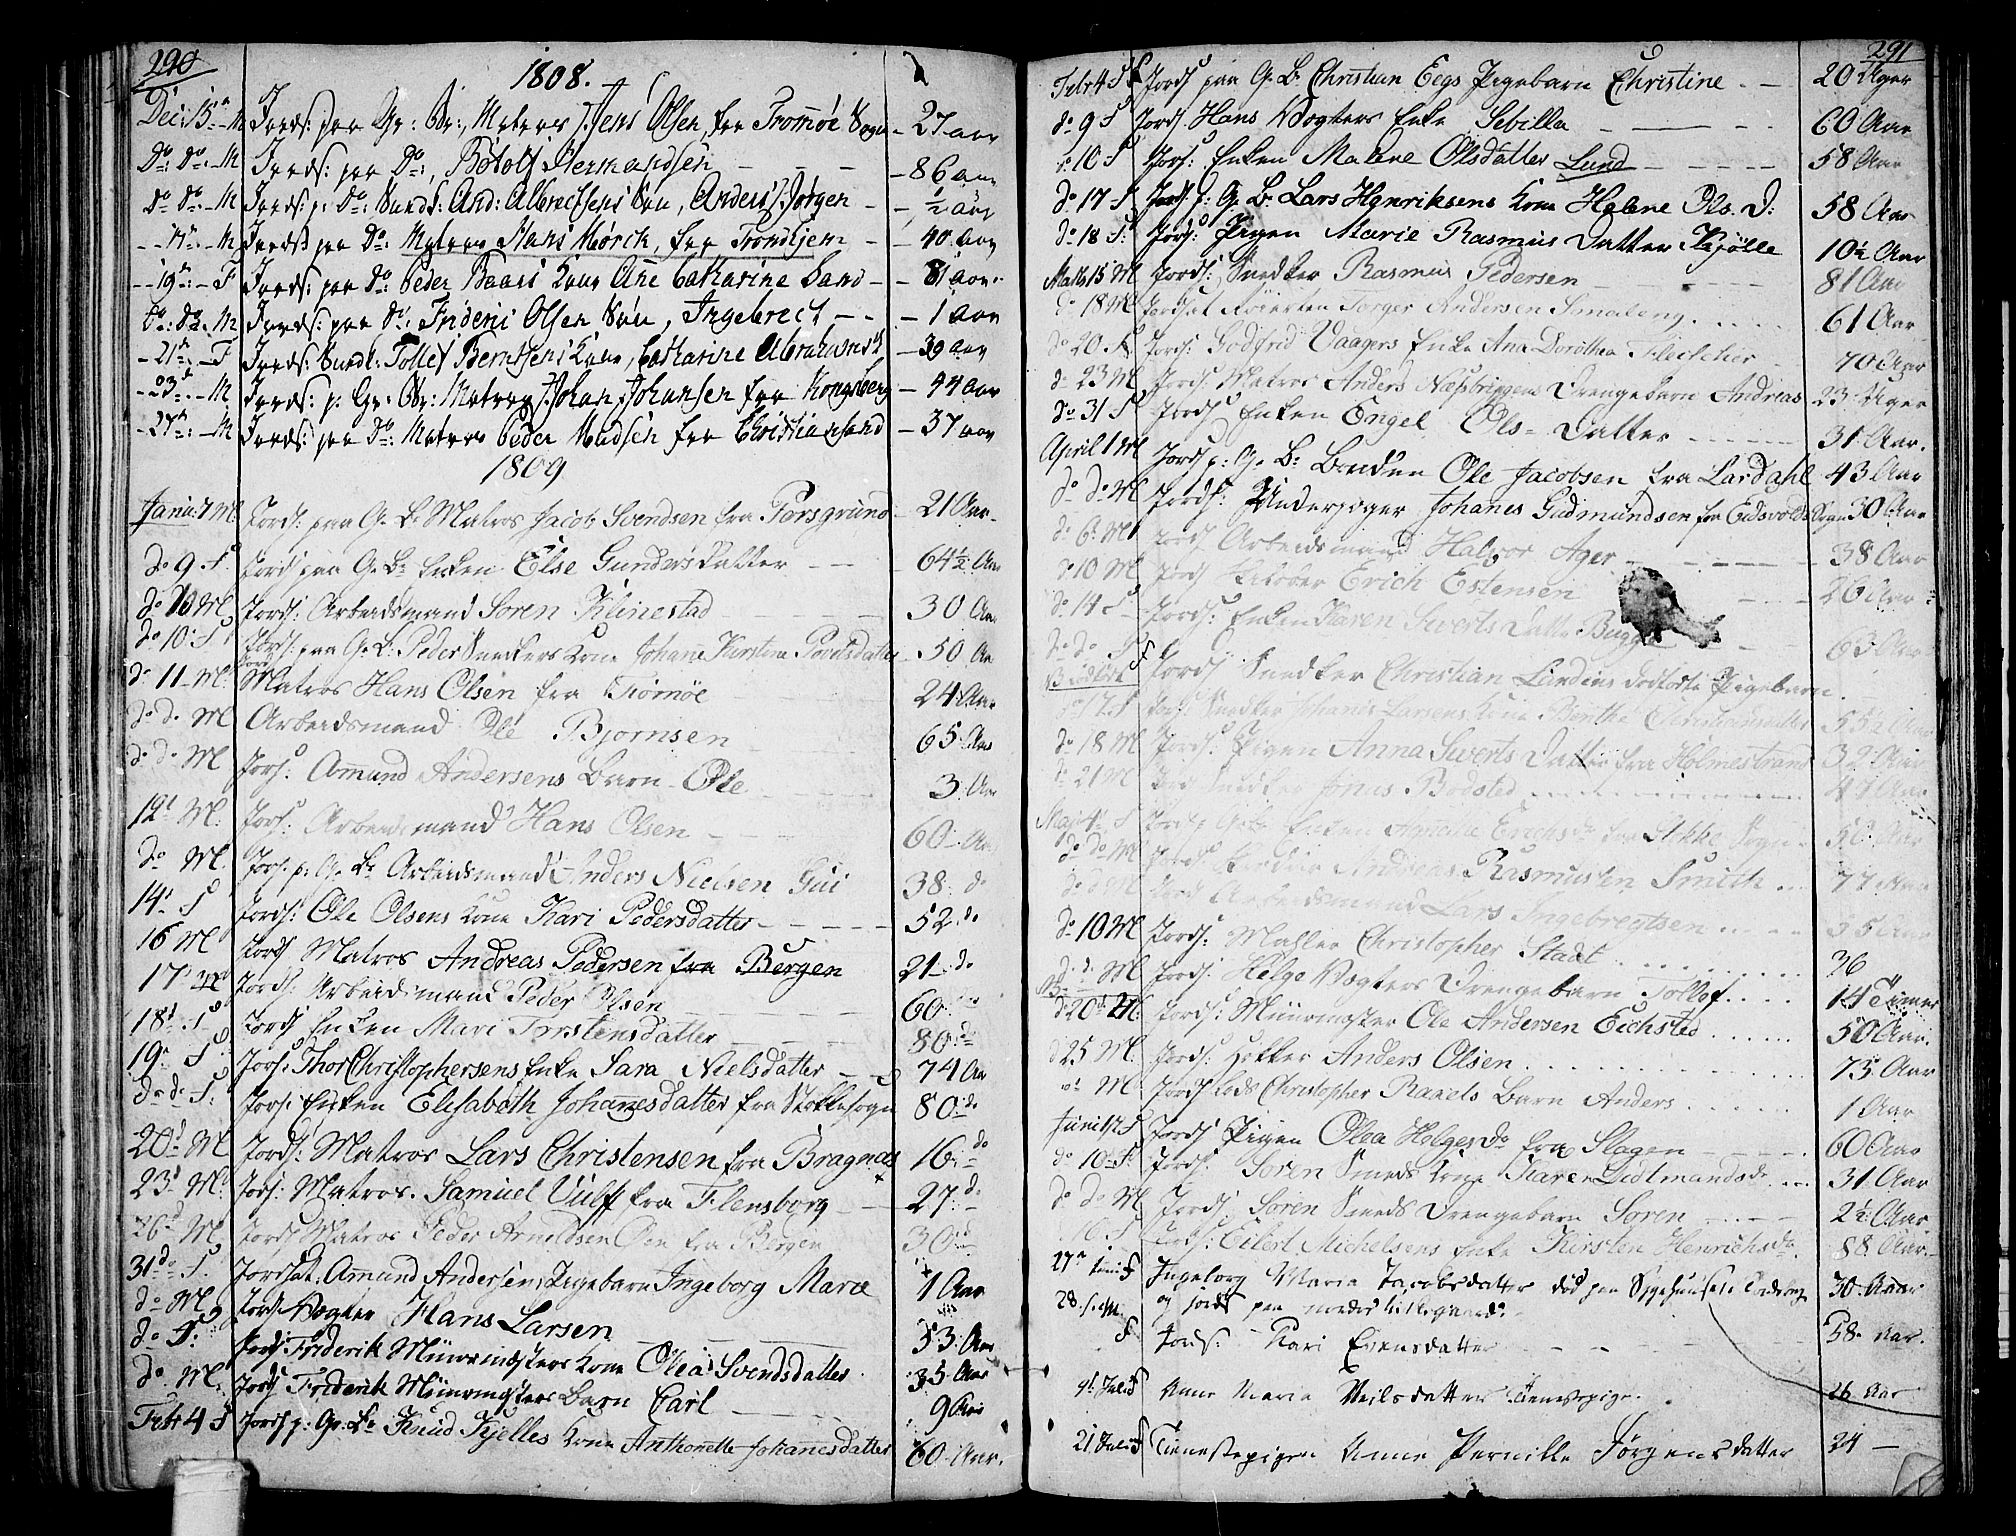 290
1808.
Dec: 15de - M Jords: paa Gr: Br:, Matros Jens Olsen, fra Tromøe Sogn - 27 aar
Do: Do: - M Jords: paa Do:, Botolf Hermandsen - 86 aar
Do Do: - M Jords: p: Do: Sundt: And: Albrectsens Søn, Anders Jørgen - ½ aar
- M Jords: paa Do: Matros Hans Mørch, fra Trondhjem - 40 aar
- 19de: - F Jords: paa Do: Peder Baars Kone Ane Catharine Sand - 81 aar
Do: Do: M Jords: paa Do: Frideric Olsen Søn, Ingebrect - 1 aar
- 21de: - F Jords: Tollef Berntsens Kone, Catharine Abrahams D - 39 aar
- 23de - M Jords: p: Gr: Br: Matros Johan Johansen fra Kongsberg - 44 aar
- 27de: - M Jords: paa Do: Matros Peder Madsen fra Christiansand - 37 aar
1809
Janu: 7 M Jords: paa G. B. Matros Jacob Svendsen fra Porsgrund - 21 Aar
do 9 F. Jords paa G. B. Enken Else Gundersdatter - 64½ Aar
do 10 M. Jords: Arbeidsmand Soren Klinestad 30 Aar
do 10: F Jords: paa G. B. Peder Snekers Kone Johane Kirstine Povelsdatter 50 Aar
do 11 - M. Jords Matros Hans Olsen fra Tromøe 24 Aar
do do M Arbeidsmand Ole Bjornsen 65 Aar
do do M Jors: Amund Andersens Barn Ole 3 Aar
12t M: Jors: Arbeidsmand Hans Olsen 60 Aar
do M. Jors. p: G. B. Arbeidsmand Anders Nielsen Gui 38 do
14t F Jords: Ole Olsens Kone Kari Pedersdatter 52 do
16 M Jords Matros Andreas Pedersen fra Bergen 21 do
17t M Jords: Arbeidsmand Peder Olsen 60
18d F Jords Enken Mari Torstensdatter 80 do
19. F Jors: Thor Christophersens Enke Sara Nielsdatter 74 Aar
do do F. Jors: Enken Elisabeth Johanesdatter fra Stokkesogn 80 do
20d M Jords: Matros Lars Christensen fra Bragnæs 16 do
23d M. Jords: Matros. Samuel Vulff fra Flensborg 27 do
26d M Jords Matros Peder Arneldsen Oen fra Bergen 30 do
31 do F. Jordsat: Amund Andersens Pigebarn Ingeborg Marie 1 Aar
do M Jords Vogter Hans Larsen 53 Aar
do F. Jords Friderik Muurmesters Kone Olea Svendsdatter 35 Aar
do M. Jords Friderik Muurmesters Barn Carl 9 Aar
Febr 4 F Jords p: Gr. B. Knud Kjelles Kone Anthonette Johanesdatter 60 Aar.
291
Febr 4 F Jords paa G. B. Christian Eegs Pigebarn Christine 20 Uger
do 9 F Jords. Hans Vogters Enke Sebilla 60 Aar
10 F Jors: Enken Malene Olsdatter Lund 58 Aar
do 17 F Jords p: G. B. Lars Henriksens Kone Helene Ols. D: 58 Aar
do 18 F. Jords: Pigen Marie Rasmus Datter Kjølle 10½ Aar
Marts 15 M Jords: Snedker Rasmus Pedersen 81 Aar
do 18 M Jordsat Torger Andersen Smaleng 61 Aar
do 20 F. Jords: Godfrid Vaagers Enke Ana Dorothea Fleischer 70 Aar
do 23 M Jords: Matros Anders Næsbryggens Drengebarn Andreas 23 Uger
do 31 F Jords Enken Engel Ols-Datter 31 Aar.
April 1 M Jords p: G. B. Bonden Ole Jacobsen fra Lardahl 43 Aar
do do M Jords: Underjæger Johanes Gudmundsen fra Eidsvolds Sogn 30 Aar
do 6 M Jords Arbeidsmand Halvor Ager 38 Aar
do 10 M Jords Erich Estensen 26 Aar
do 14 F Jords: Enken Karen Siverts Datter Bugge 63 Aar
do do F Jords Snedker Christian Lundins dodfodte Pigebarn
NB dødfødt
17 F Jords Snedker Johanes Larsens Kone Berthe Christiansdatter 55½ Aar
do 18 M Jords: Pigen Anna Siverts Datter fra Holmestrand 32 Aar
do 21 M Jords Snedker Jonas Bodsted 47 Aar
Maj 4 F Jords p G. B. Enken Amelie Erichs D fra Stokke Sogn 50 Aar
do do M Jords Andreas Rasmussen Smith 77 Aar
do do M Jords Arbeidsmand Lars Ingebregtsen 55 Aar
do 10 M Jords: Mahler Christopher Stadt 36
do do M Jords: Helge Vogters Drengebarn Tollof 14 Timer
NB
do 20d M. Jords: Muurmester Ole Andersen Eichsted 50 Aar.
25 M. Jords: Anders Olsen 75 Aar
M. Jords Lods Christopher Ravels Barn Anders 1 Aar
Juni 1 F Jords Pigen Olea Helges D. fra Slagen 60 Aar
do 10 F. Jords: Soren Smeds Kone Karen Lidtmands D. 31 Aar
do do M Jords: Soren Smeds Drengebarn Soren 2½ Aar
16 F Jords: Eilert Michelsens Enke Kirsten Henrichs D. 88 Aar
27de Juni F Ingeborg Maria Jacobsdatter død paa Sygehuuset 30 Aar
og jords paa nordre Kirkegaard.
28. F Jords: Kari Evensdatter 58 Aar.
9de Juli F Anne Maria Neilsdatter Tienestepige 26 Aar
21 Juli F Tienestepigen Anne Pernille Jørgensdatter 24 -